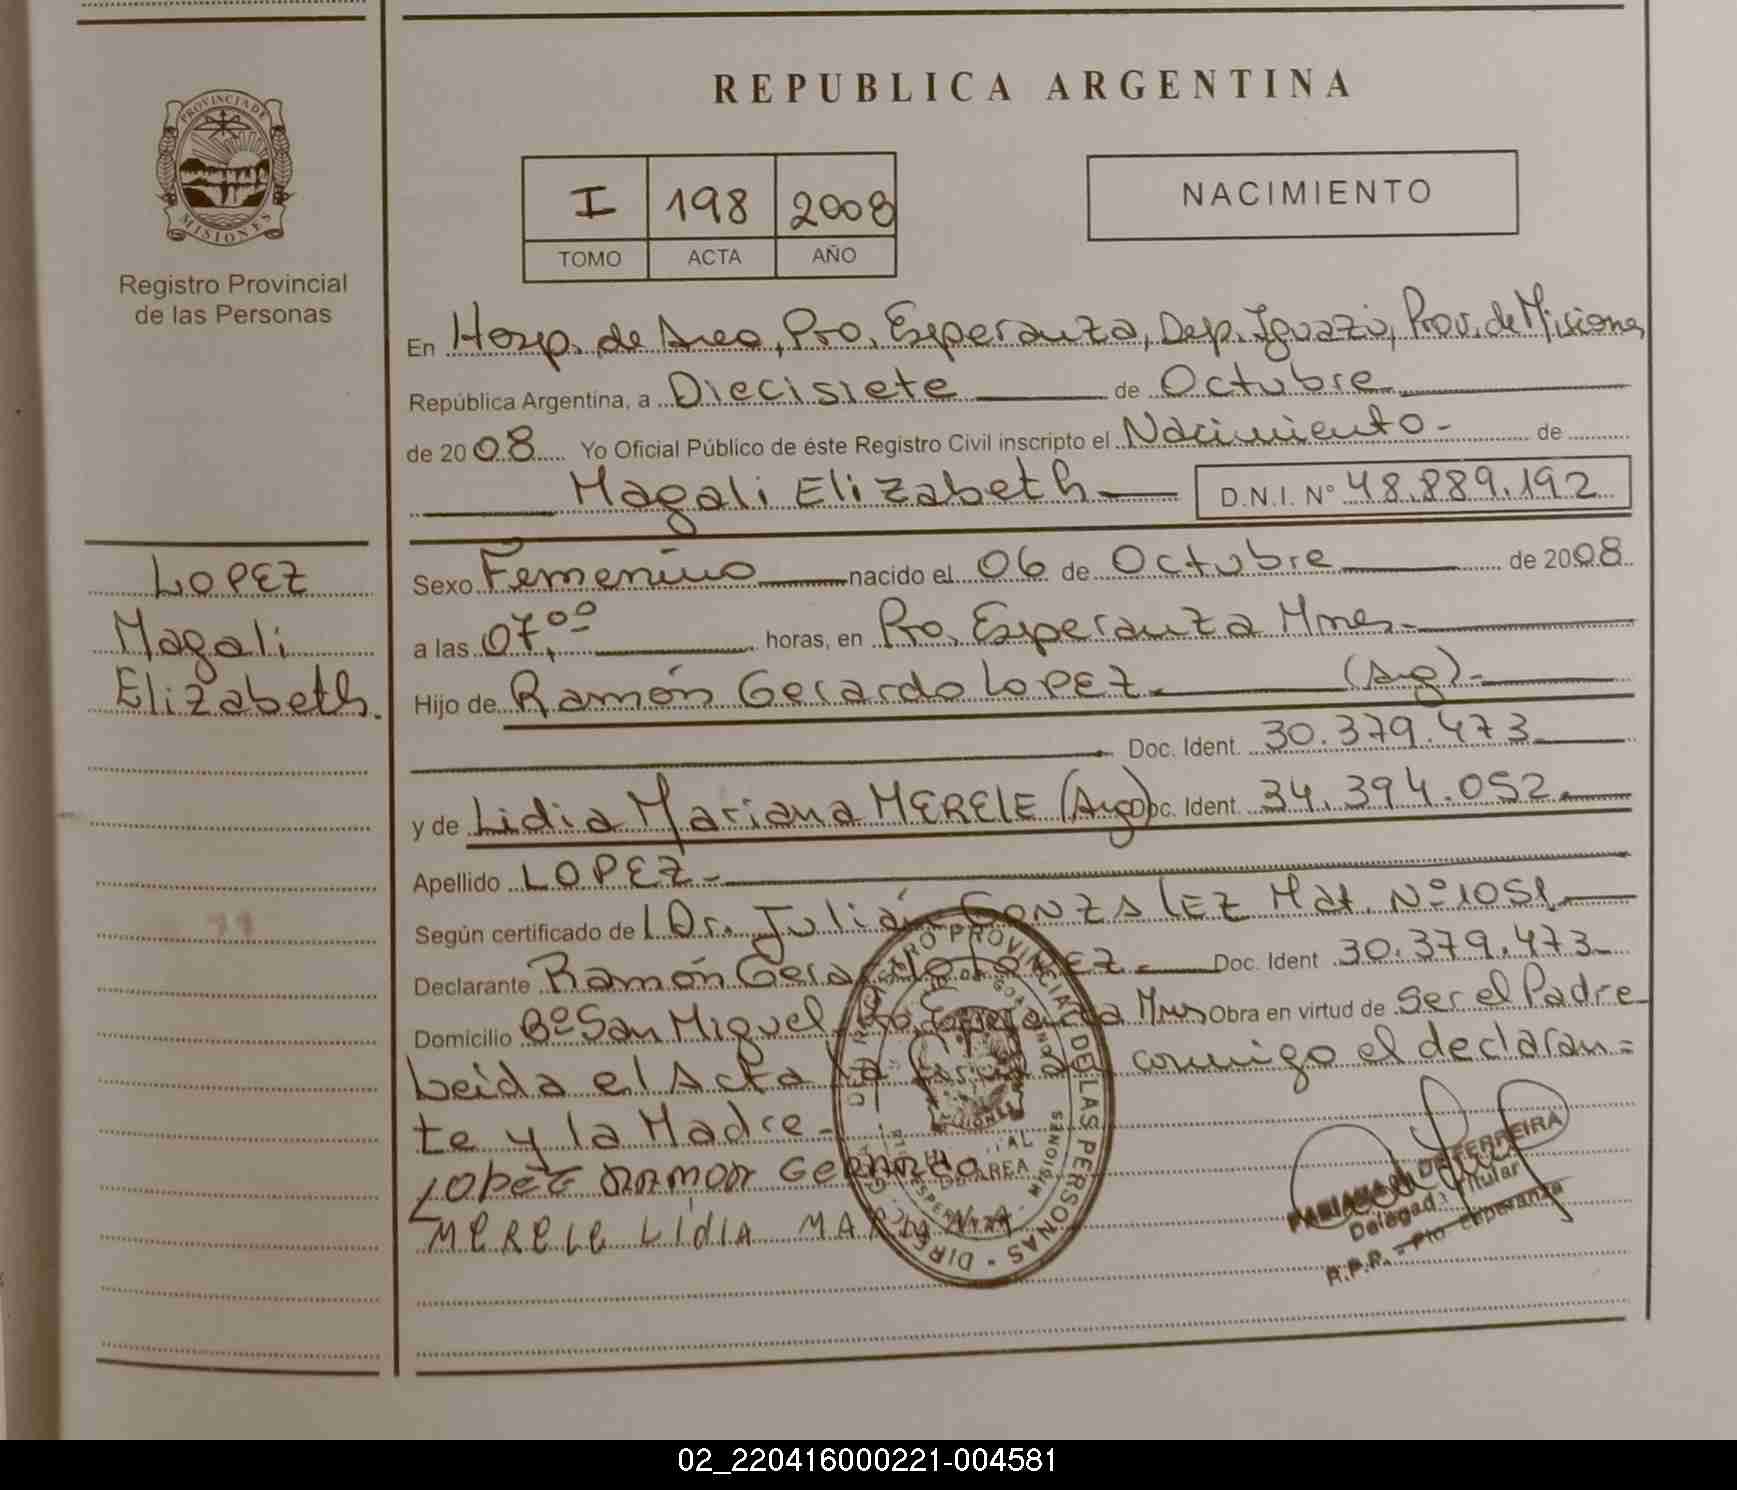 REPUBLICA ARGENTINA
PROVINCIA DE
MISIONES
Registro Provincial
de las Personas
I 198 2008
TOMO ACTA AÑO
NACIMIENTO
En Hosp. de Area, Pto. Esperanza, Dep. Iguazú, Prov. de Misiones
República Argentina, a Diecisiete de Octubre
de 2008 Yo Oficial Público de éste Registro Civil inscripto el Nacimiento - de
Magali Elizabeth D.N.I. N° 48.889.192
LOPEZ
Magali
Elizabeth.
Sexo Femenino nacido el 06 de Octubre de 2008
a las 07,00 horas, en Pto. Esperanza Mnes.
Hijo de Ramón Gerardo LOPEZ. (Arg).
Doc. Ident. 30.379.473
y de Lidia Mariana MERELE (Arg) Doc. Ident. 34.394.052.
Apellido LOPEZ
Según certificado de Dr. Julián GONZALEZ Mat. Nº 1051
Declarante Ramón Gerardo LOPEZ. Doc. Ident 30.379.473
Domicilio Bº San Miguel Pto. Esperanza Mnes Obra en virtud de Ser el Padre
Leida el Acta la conmigo el declaran=
te y la Madre
LOPEZ RAMON GERARDO
MERELE LIDIA MARIANA
REGISTRO PROVINCIAL DE LAS PERSONAS
MISIONES
DE FERREIRA
Delegada Titular
R.P.P. - Pto Esperanza
02_220416000221-004581